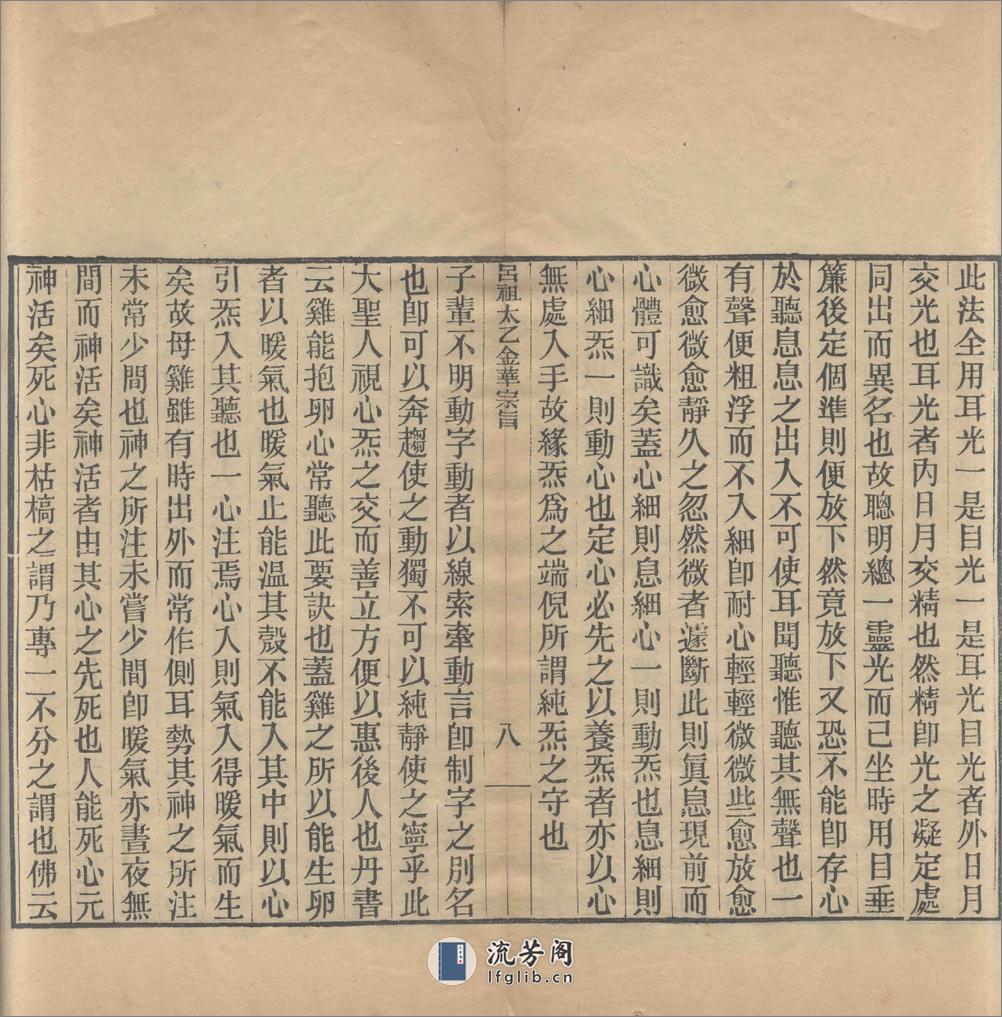 此法全用耳光一是目光一是耳光目光者外日月
交光也耳光者內日月交精也然精卽光之凝定處
同出而異名也故聰明總一靈光而已坐時用目垂
簾後定個準則便放下然竟放下又恐不能卽存心
於聽息息之出入不可使耳聞聽惟聽其無聲也一
有聲便粗浮而不入細卽耐心輕輕微微些愈放愈
微愈微愈靜久之忽然微者遽斷此則眞息現前而
心體可識矣蓋心細則息細心一則動炁也息細則
心細炁一則動心也定心必先之以養炁者亦以心
無處入手故緣炁爲之端倪所謂純炁之守也
呂祖太乙金華宗旨
八
子輩不明動字動者以線索牽動言卽制字之別名
也卽可以奔趨使之動獨不可以純靜使之寧乎此
大聖人視心炁之交而善立方便以惠後人也丹書
云雞能抱卵心常聽此要訣也蓋雞之所以能生卵
者以暖氣也暖氣止能温其殼不能入其中則以心
引炁入其聽也一心注焉心入則氣入得暖氣而生
矣故母雞雖有時出外而常作側耳勢其神之所注
未常少間也神之所注未嘗少間卽暖氣亦晝夜無
間而神活矣神活者由其心之先死也人能死心元
神活矣死心非枯槁之謂乃專一不分之謂也佛云
流芳阁
lfglib.cn